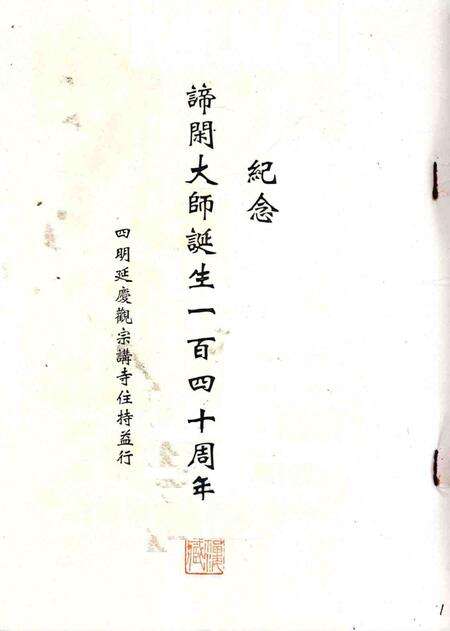 紀念
諦閑大師誕生一百四十周年
四明延慶觀宗講寺住持益行
漢藏
1